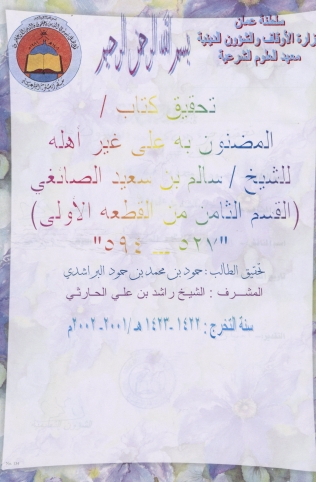 سلطنة عمان
وزارة الأوقاف والشؤون الدينية
معهد العلوم الشرعية
بسم الله الرحمن الرحيم
تحقيق كتاب /
المضنون به على غير أهله
للشيخ / سالم بن سعيد الصائغي
(القسم الثامن من القطعه الأولى)
"٥٢٧ــ ٥٩٤"
تحقيق الطالب : حمود بن محمد بن حمود البراشدي
المشرف : الشيخ راشد بن علي الحارثي
سنة التخرج : ١٤٢٢-١٤٢٣هـ/٢٠٠١-٢٠٠٢م